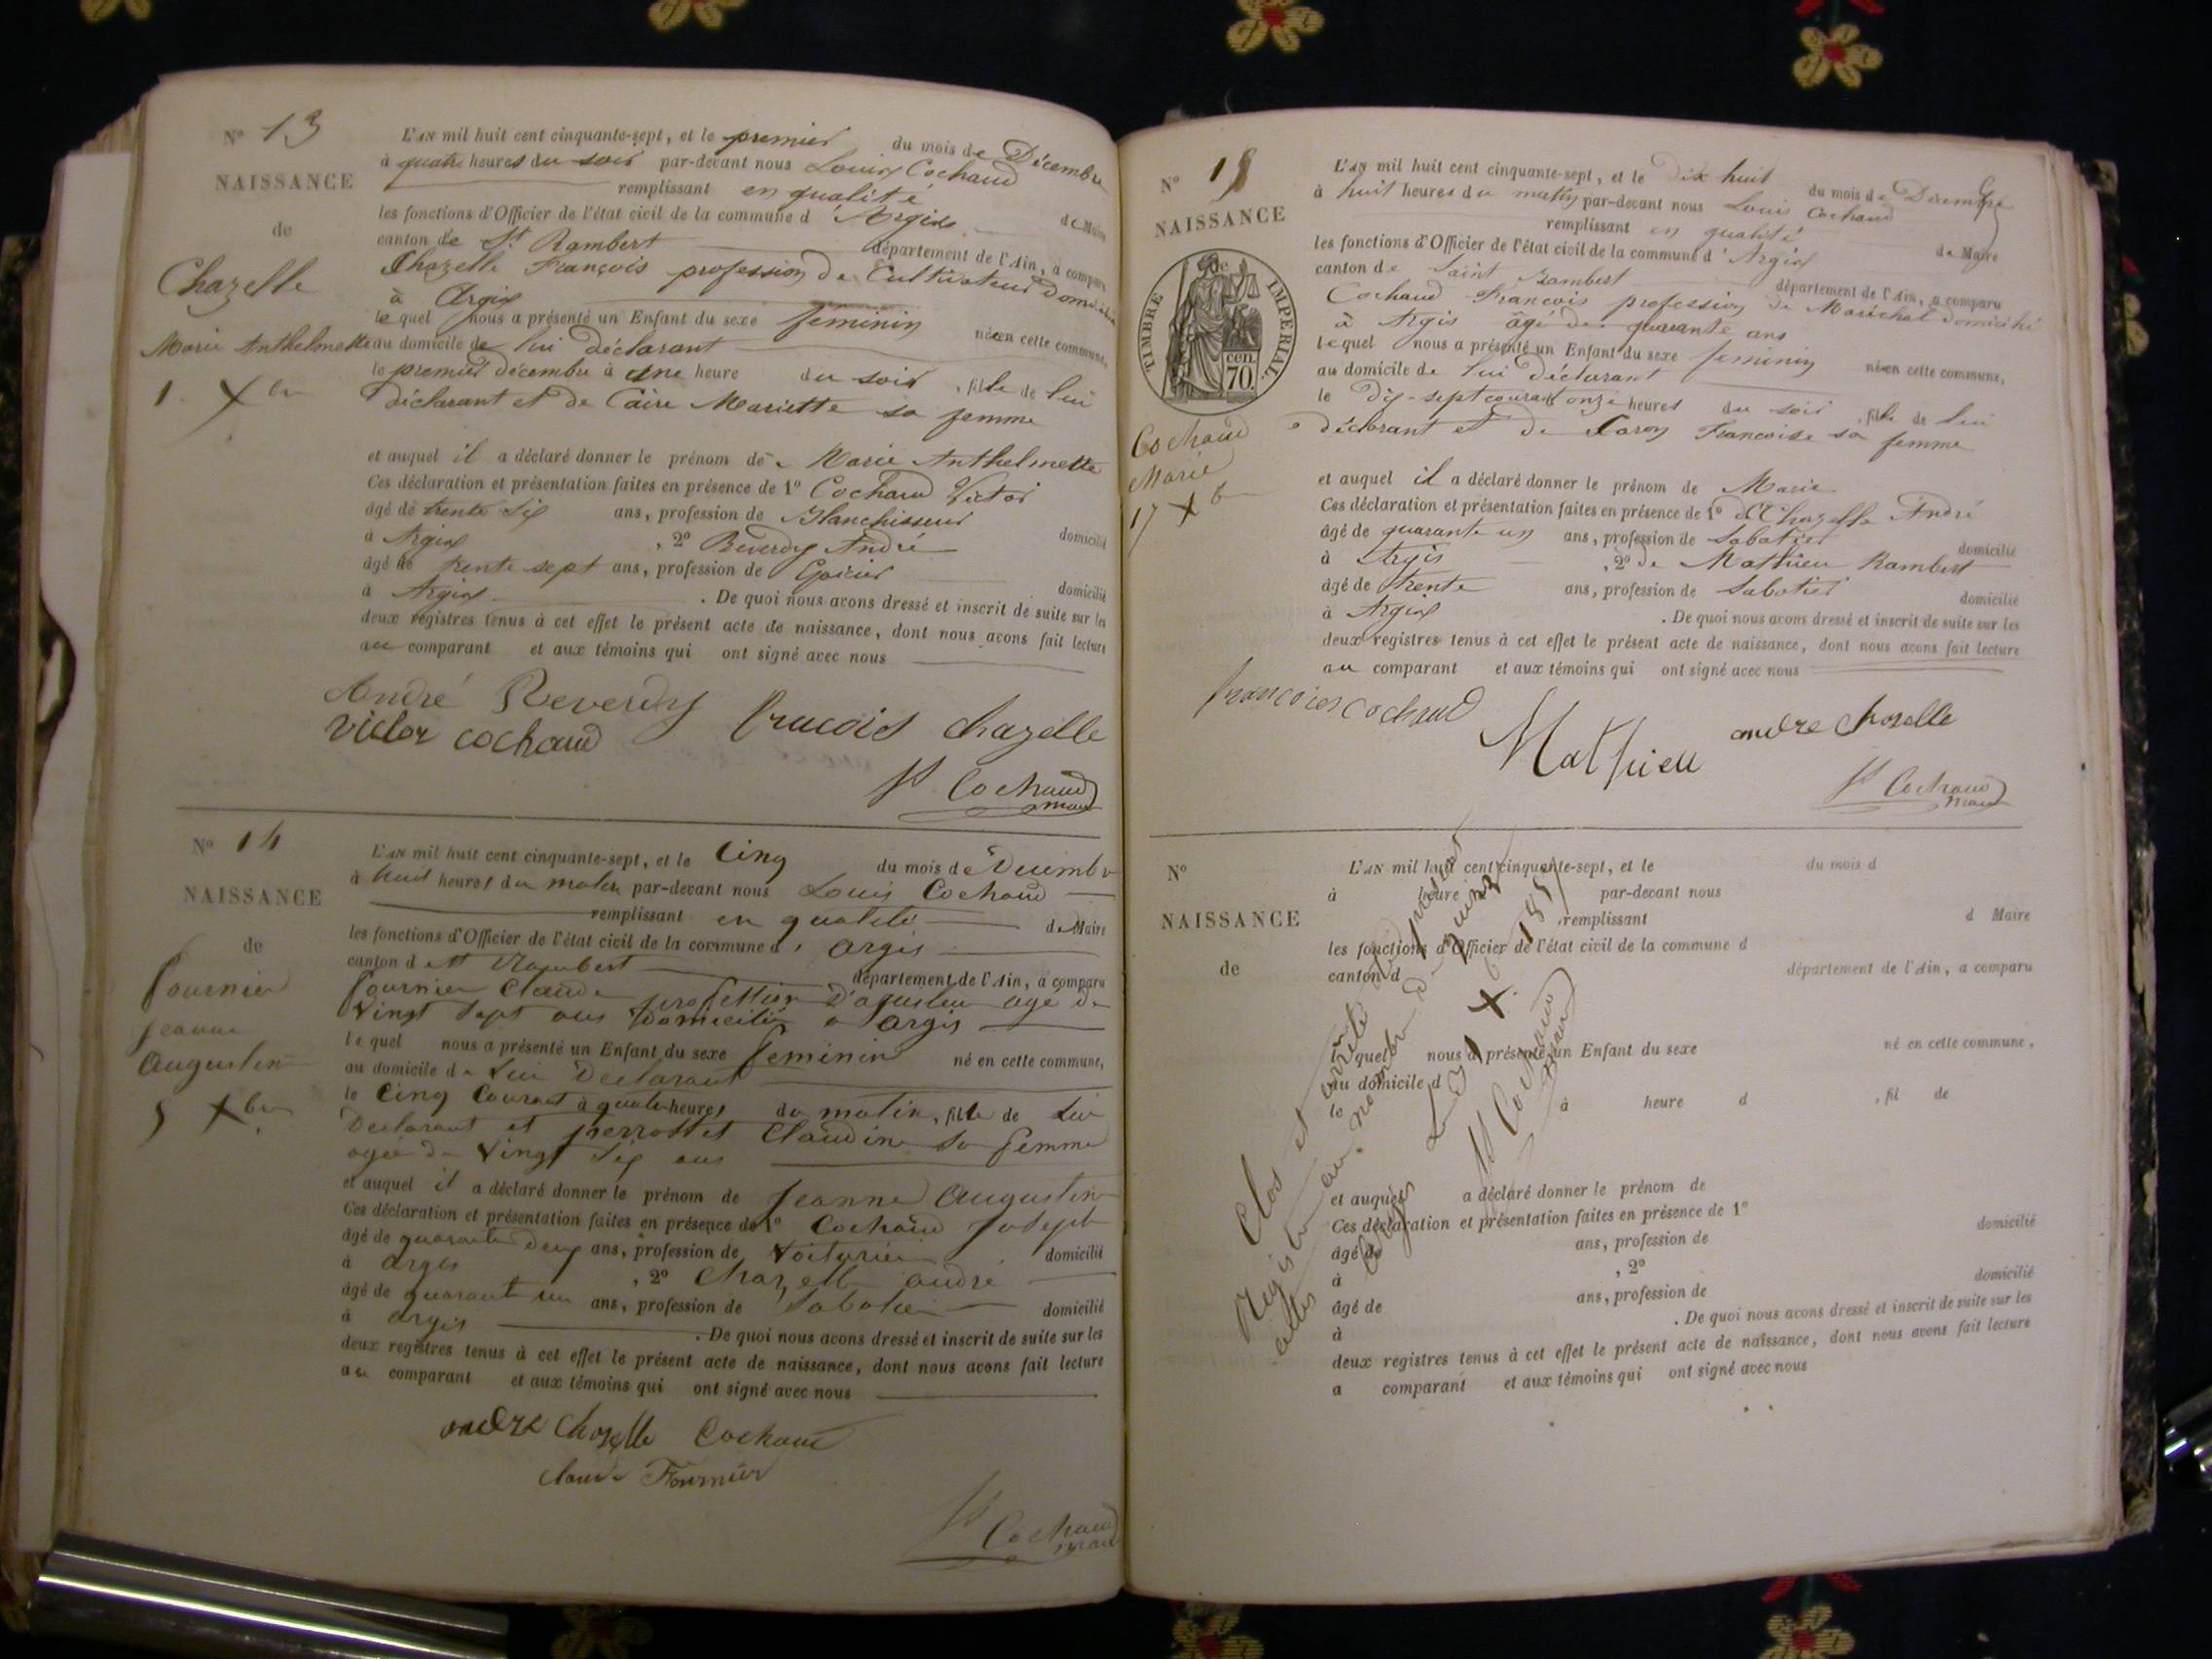 N° 13
NAISSANCE
de
Chazelle
Marie Anthelmette
1. Xbre
L'AN mil huit cent cinquante-sept, et le premier du mois de Décembre
à quatre heures du soir par-devant nous Louis Cochaud
remplissant en qualité de Maire
les fonctions d'Officier de l'état civil de la commune d'Argis
canton de St Rambert département de l'Ain, a comparu
Chazelle François profession de Cultivateur domicilié
à Argis
lequel nous a présenté un Enfant du sexe feminin né en cette commune,
au domicile de lui déclarant
le premier décembre à une heure du soir, fille de lui
déclarant et de Caire Mariette sa femme
et auquel il a déclaré donner le prénom de Marie Anthelmette
Ces déclaration et présentation faites en présence de 1° Cochaud Victor
âgé de trente six ans, profession de Blanchisseur domicilié
à Argis, 2° Reverdy André
âgé de trente sept ans, profession de Epicier domicilié
à Argis. De quoi nous avons dressé et inscrit de suite sur les
deux registres tenus à cet effet le présent acte de naissance, dont nous avons fait lecture
au comparant et aux témoins qui ont signé avec nous
André Reverdy francois chazelle
victor cochaud
Ls Cochaud
maire
N° 14
NAISSANCE
de
fournier
jeanne
augustine
5 Xbre
L'AN mil huit cent cinquante-sept, et le Cinq du mois de Decembre
à huit heures du matin par-devant nous Louis Cochaud
remplissant en qualité de Maire
les fonctions d'Officier de l'état civil de la commune d'argis
canton de st Rambert département de l'Ain, a comparu
fournier Claude profession D'ajusteur agé de
Vingt Sept ans Domicilié a argis
lequel nous a présenté un Enfant du sexe feminin né en cette commune,
au domicile de Lui Declarant
le Cinq Courant à quatre heures du matin, fille de Lui
Declarant et perrosset Claudine Sa femme
agée de Vingt Six ans
et auquel il a déclaré donner le prénom de jeanne augustine
Ces déclaration et présentation faites en présence de 1° Cochaud joseph
âgé de quarante deux ans, profession de Voiturier domicilié
à argis, 2° Chazelle andré
âgé de quarante un ans, profession de Sabotier domicilié
à argis. De quoi nous avons dressé et inscrit de suite sur les
deux registres tenus à cet effet le présent acte de naissance, dont nous avons fait lecture
au comparant et aux témoins qui ont signé avec nous
andre chazelle Cochaud
claude Fournier
Ls Cochaud
maire
N° 15
NAISSANCE
de
TIMBRE IMPERIAL.
cen.
70.
Cochaud
Marie
17 Xbre
L'AN mil huit cent cinquante-sept, et le Dix huit du mois de Décembre
à huit heures du matin par-devant nous Louis Cochaud
remplissant en qualité de Maire
les fonctions d'Officier de l'état civil de la commune d'Argis
canton de Saint Rambert département de l'Ain, a comparu
Cochaud François profession de Maréchal domicilié
à Argis âgé de quarante ans
lequel nous a présenté un Enfant du sexe feminin né en cette commune,
au domicile de lui déclarant
le Dix-sept courant onze heures du soir, fille de lui
déclarant et de Caron Francoise sa femme
et auquel il a déclaré donner le prénom de Marie
Ces déclaration et présentation faites en présence de 1° Chazelle André
âgé de quarante un ans, profession de Sabotier domicilié
à Argis, 2° de Mathieu Rambert
âgé de trente ans, profession de Sabotier domicilié
à Argis. De quoi nous avons dressé et inscrit de suite sur les
deux registres tenus à cet effet le présent acte de naissance, dont nous avons fait lecture
au comparant et aux témoins qui ont signé avec nous
francois cochaud
Mathieu andre chazelle
Ls Cochaud
maire
N°
NAISSANCE
de
L'AN mil huit cent cinquante-sept, et le du mois d
à heure par-devant nous
remplissant d Maire
les fonctions d'Officier de l'état civil de la commune d
canton d département de l'Ain, a comparu
l quel nous a présenté un Enfant du sexe né en cette commune,
au domicile d
le à heure d, fil de
et auquel a déclaré donner le prénom de
Ces déclaration et présentation faites en présence de 1°
âgé de ans, profession de domicilié
à, 2°
âgé de ans, profession de domicilié
à. De quoi nous avons dressé et inscrit de suite sur les
deux registres tenus à cet effet le présent acte de naissance, dont nous avons fait lecture
a comparant et aux témoins qui ont signé avec nous
Clos et arrêté le présent
Registre au nombre de quinze
actes
argis Le 31 Xbre 1857
Ls Cochaud
maire